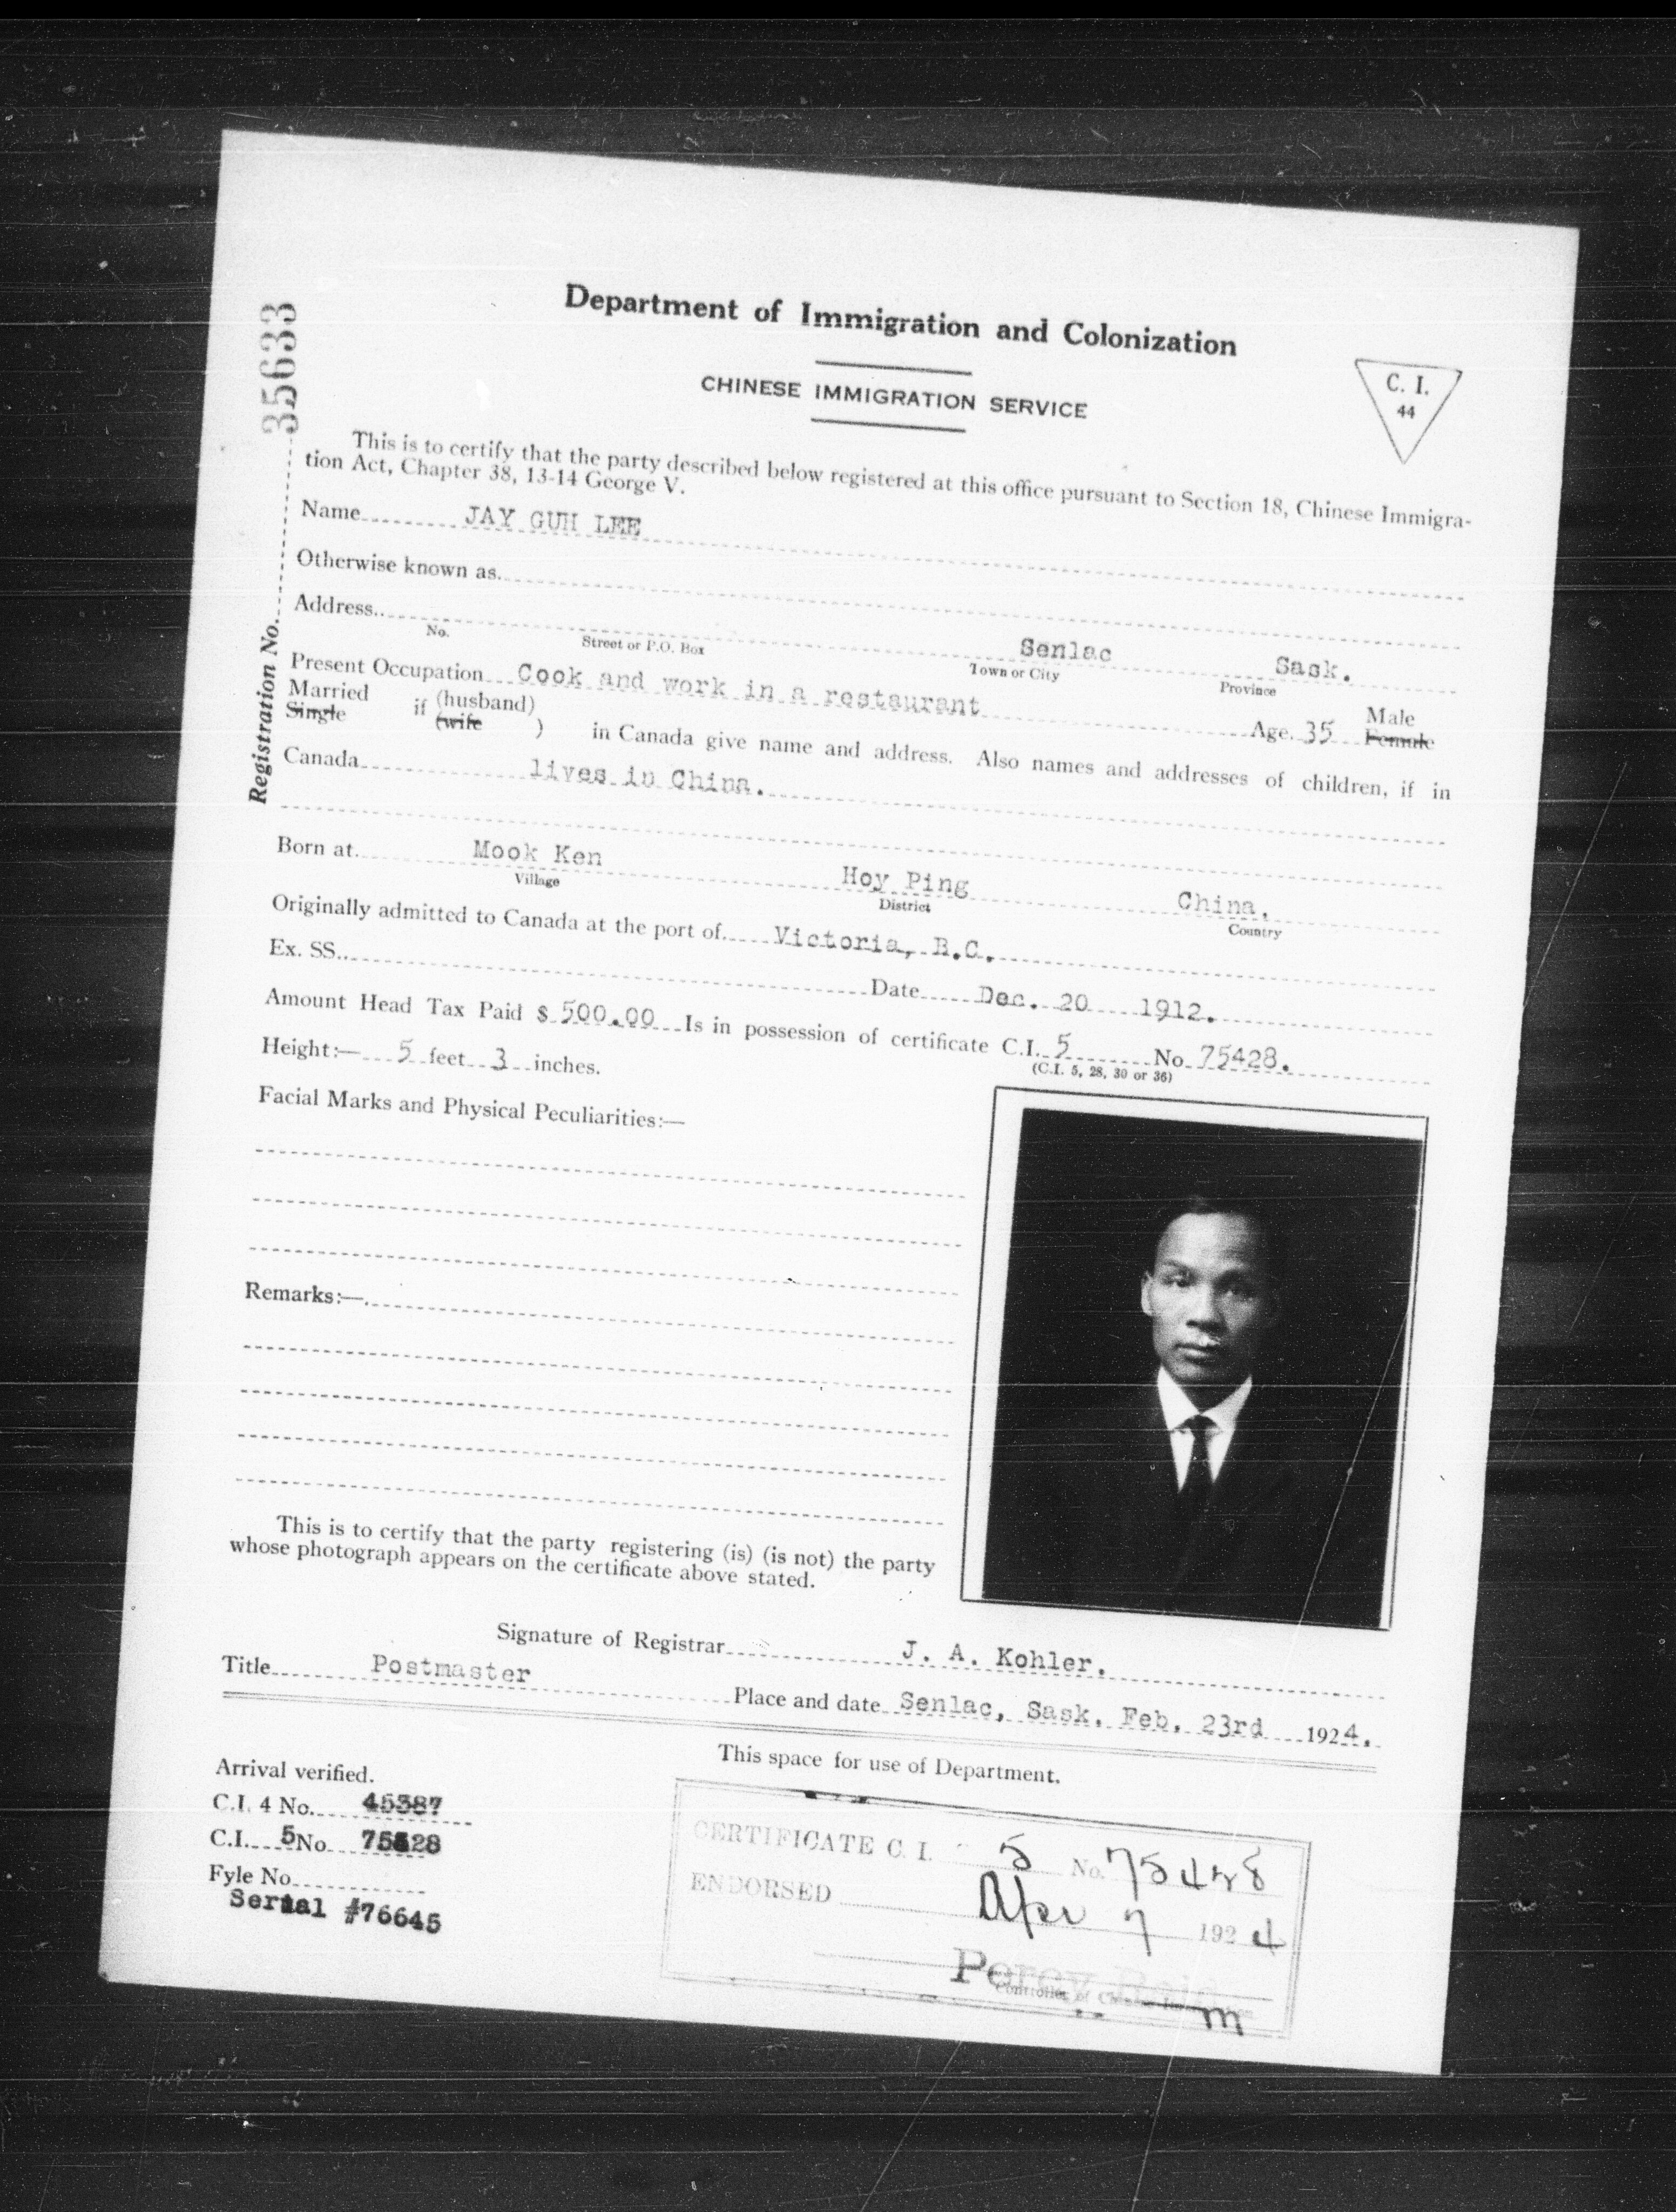 Department of Immigration and Colonization
CHINESE IMMIGRATION SERVICE
C. I.
44
Registration No. 35633
This is to certify that the party described below registered at this office pursuant to Section 18, Chinese Immigra-
tion Act, Chapter 38, 13-14 George V.
Name JAY GUH LEE
Otherwise known as
Address Senlac Sask.
No. Street or P.O. Box Town or City Province
Present Occupation Cook and work in a restaurant Age 35 Male
Female
Married
Single if (husband)
(wife ) in Canada give name and address. Also names and addresses of children, if in
Canada lives in China.
Born at Mook Ken Hoy Ping China,
Village District Country
Originally admitted to Canada at the port of Victoria, B.C.
Ex. SS. Date Dec. 20 1912.
Amount Head Tax Paid $ 500.00 Is in possession of certificate C.I. 5 No 75428.
(C.I. 5, 28, 30 or 36)
Height:— 5 feet 3 inches.
Facial Marks and Physical Peculiarities:—
Remarks:—
This is to certify that the party registering (is) (is not) the party
whose photograph appears on the certificate above stated.
Signature of Registrar J. A. Kohler.
Title Postmaster
Place and date Senlac, Sask. Feb. 23rd 1924.
This space for use of Department.
Arrival verified.
C.I. 4 No. 45387
C.I. 5 No. 75428
Fyle No.
Serial #76645
CERTIFICATE C. I. 5 No. 75428
ENDORSED Apr 7 1924
Percy Reid
Controller of Chinese Immigration
m